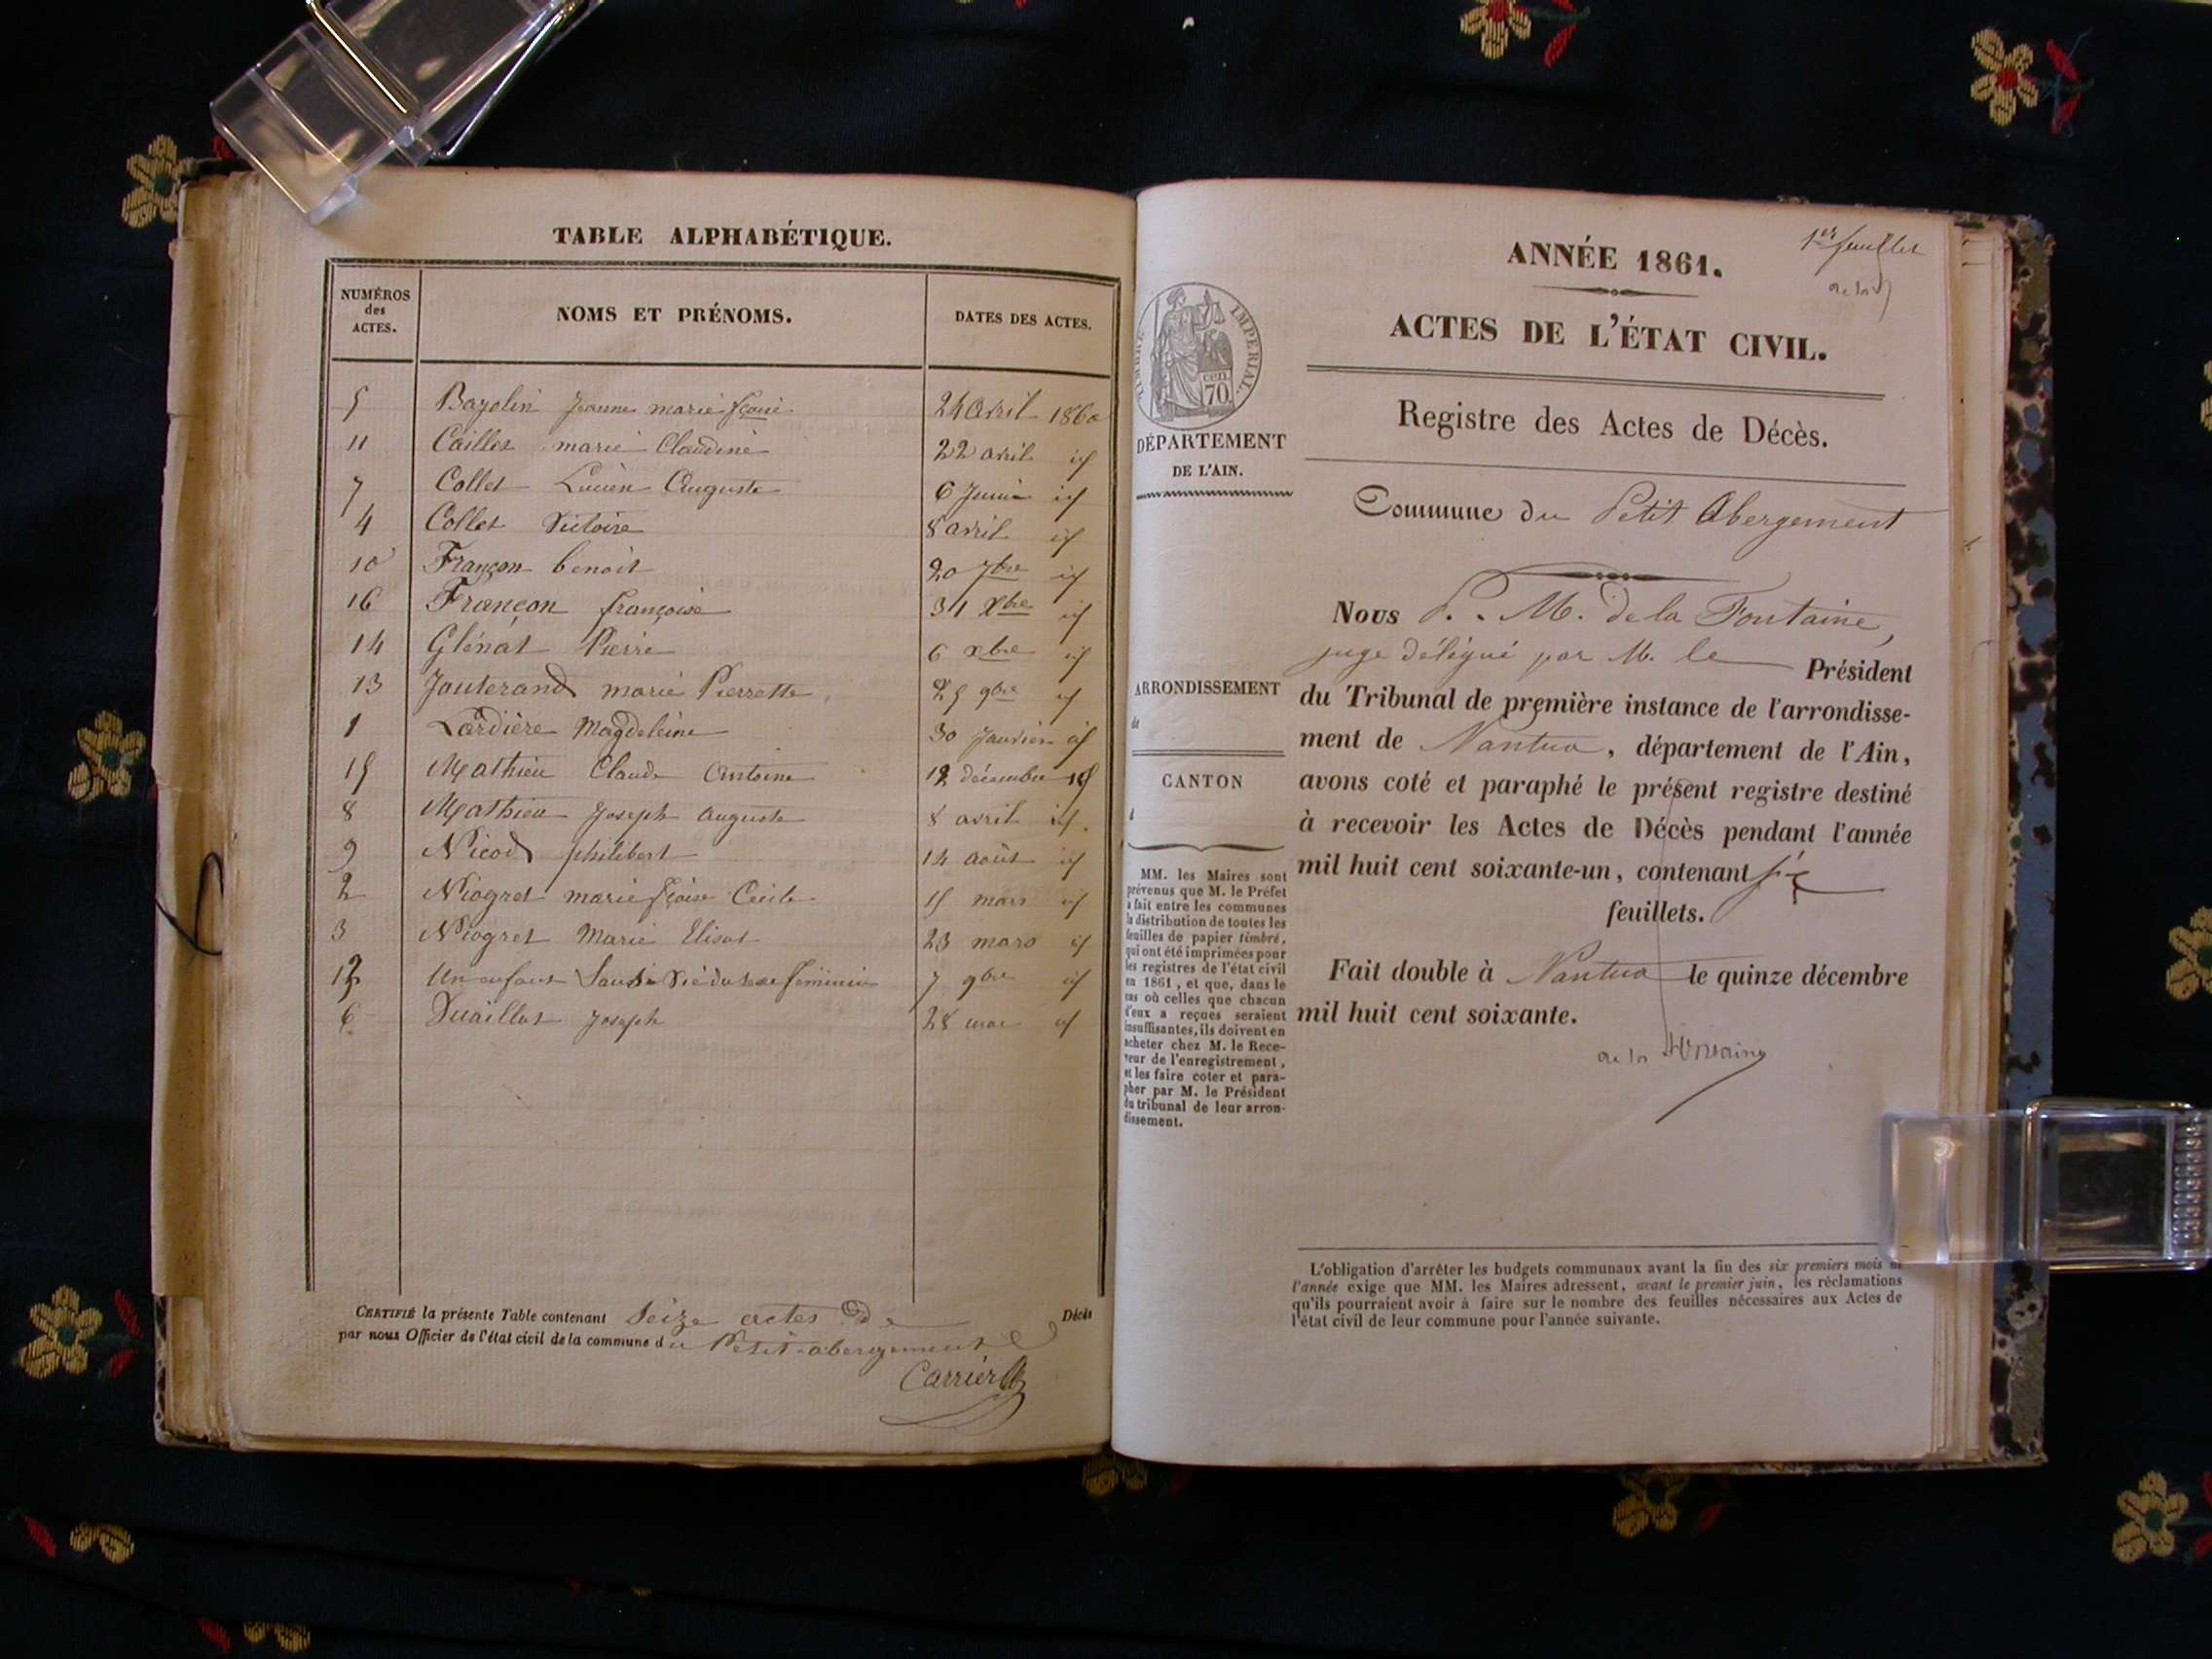 TABLE ALPHABÉTIQUE.
NUMÉROS
des
ACTES.
NOMS ET PRÉNOMS.
DATES DES ACTES.
5 Bazolin Jeanne marie fçoise 24 avril 1860
11 Caillet marie Claudine 22 avril id
7 Collet Lucien Auguste 6 Juin id
4 Collet Victoire 8 avril id
10 Françon benoit 20 7bre id
16 Françon françoise 31 Xbre id
14 Glénat Pierre 6 xbre id
13 Jouterand marie Pierrette 25 9bre id
1 Lardière Magdeleine 30 Janvier id
15 Mathieu Claude Antoine 12 décembre id
8 Mathieu Joseph auguste 8 avril id.
9 Nicod philibert 14 août id
2 Niogret marie fçoise Cécile 15 mars id
3 Niogret Marie Elisa 23 mars id
12 Un enfant Sans vie du sexe féminin 7 9bre id
6 Joseph 28 mai id
CERTIFIÉ la présente Table contenant Seize actes De Décès
par nous Officier de l'état civil de la commune du Petit-abergement
Carrier
1er feuillet
de la
ANNÉE 1861.
ACTES DE L'ÉTAT CIVIL.
Registre des Actes de Décès.
Commune du Petit Abergement
TIMBRE IMPÉRIAL.
70 cen
DÉPARTEMENT
DE L'AIN.
ARRONDISSEMENT
de
CANTON
d
MM. les Maires sont
prévenus que M. le Préfet
a fait entre les communes
la distribution de toutes les
feuilles de papier timbré,
qui ont été imprimées pour
les registres de l'état civil
en 1861, et que, dans le
cas où celles que chacun
d'eux a reçues seraient
insuffisantes, ils doivent en
acheter chez M. le Rece-
veur de l'enregistrement,
et les faire coter et para-
pher par M. le Président
du tribunal de leur arron-
dissement.
Nous P. M. de la Fontaine,
juge délégué par M. le Président
du Tribunal de première instance de l'arrondisse-
ment de Nantua, département de l'Ain,
avons coté et paraphé le présent registre destiné
à recevoir les Actes de Décès pendant l'année
mil huit cent soixante-un, contenant six
feuillets.
Fait double à Nantua le quinze décembre
mil huit cent soixante.
de la Fontaine
L'obligation d'arrêter les budgets communaux avant la fin des six premiers mois de
l'année exige que MM. les Maires adressent, avant le premier juin, les réclamations
qu'ils pourraient avoir à faire sur le nombre des feuilles nécessaires aux Actes de
l'état civil de leur commune pour l'année suivante.